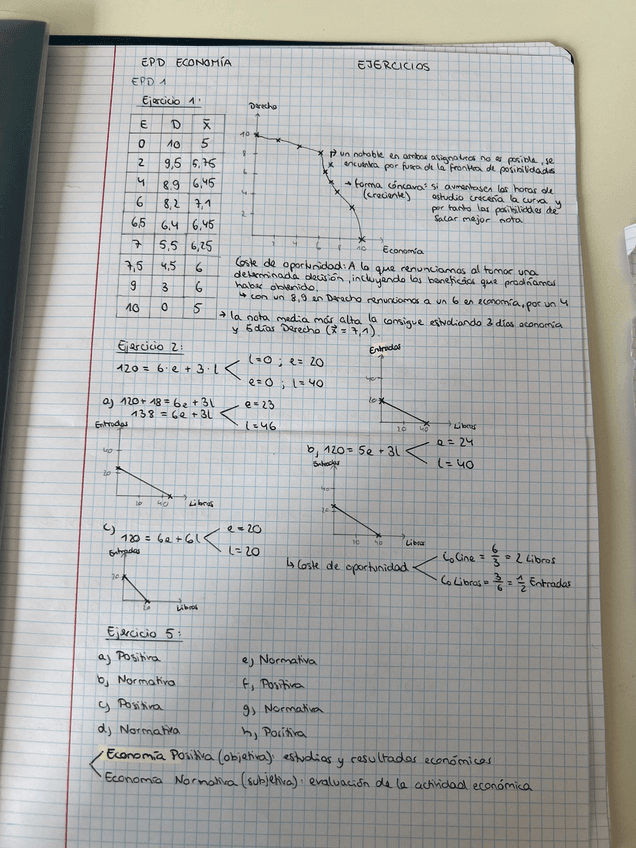 EPD ECONOMÍA EJERCICIOS
EPD 1
Ejercicio 1:
E D X̄
0 10 5
2 9,5 5,75
4 8,9 6,45
6 8,2 7,1
6,5 6,4 6,45
7 5,5 6,25
7,5 4,5 6
9 3 6
10 0 5
Derecho
10
8
6
4
2
2 4 6 8 10
Economía
↱ un notable en ambas asignaturas no es posible, se
encuentra por fuera de la frontera de posibilidades
→ forma cóncava: si aumentasen las horas de
(creciente) estudio crecería la curva y
por tanto las posibilidades de
sacar mejor nota
Coste de oportunidad: A lo que renunciamos al tomar una
determinada decisión, incluyendo los beneficios que podríamos
haber obtenido.
↳ con un 8,9 en Derecho renunciamos a un 6 en economía, por un 4
→ la nota media más alta la consigue estudiando 3 días economía
y 5 días Derecho (x̄ = 7,1).
Ejercicio 2:
120 = 6·e + 3·l
l=0 ; e=20
e=0 ; l=40
Entradas
40
20
20 40 Libros
a) 120+18=6e+3l
138=6e+3l
e=23
l=46
Entradas
40
20
20 40 Libros
b) 120=5e+3l
e=24
l=40
Entradas
40
20
20 40 Libros
c) 120=6e+6l
e=20
l=20
Entradas
20
20 Libros
↳ Coste de oportunidad
Co Cine = 6/3 = 2 Libros
Co Libros = 3/6 = 1/2 Entradas
Ejercicio 5:
a) Positiva e) Normativa
b) Normativa f) Positiva
c) Positiva g) Normativa
d) Normativa h) Positiva
Economía Positiva (objetiva): estudios y resultados económicos
Economía Normativa (subjetiva): evaluación de la actividad económica